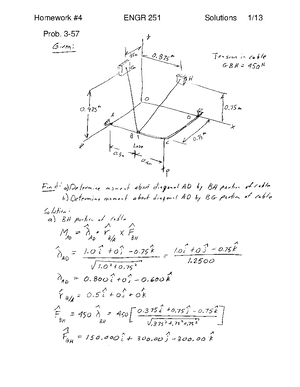 Homework #4 ENGR 251 Solutions 1/13
Prob. 3-57
Given:
y
0.875m
Tension in cable
GBH = 450N
G
H
0.925m
0.75m
O
x
A
B
C
D
0.5m
0.5m
0.75m
z
P
Find: a) Determine moment about diagonal AD by BH portion of cable
b) Determine moment about diagonal AD by BG portion of cable
Solution:
a) BH portion of cable
M_AD = λ_AD · r_B/A × F_BH
λ_AD = (1.0i + 0j - 0.75k) / √(1.0² + 0.75²) = (1.0i + 0j - 0.75k) / 1.2500
λ_AD = 0.800i + 0j - 0.600k
r_B/A = 0.5i + 0j + 0k
F_BH = 450 λ_BH = 450 [(0.375i + 0.75j - 0.75k) / √(.375² + .75² + .75²)]
F_BH = 150.000i + 300.00j - 300.00k